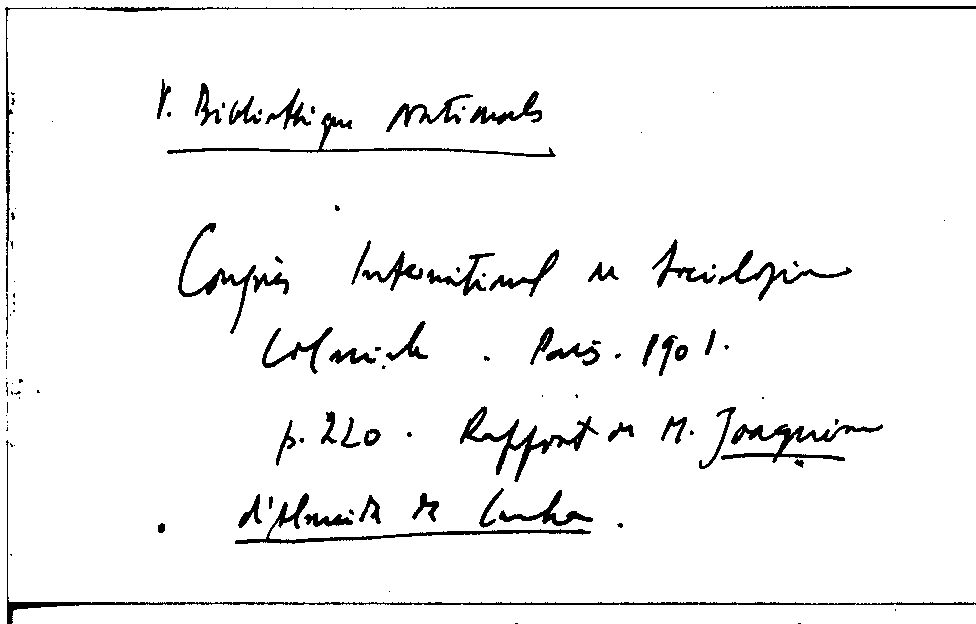 V. Bibliothèque Nationale
Congrès International de Sociologie
Coloniale. Paris. 1901.
p. 220. Rapport de M. Joaquim
d'Almeida da Cunha.